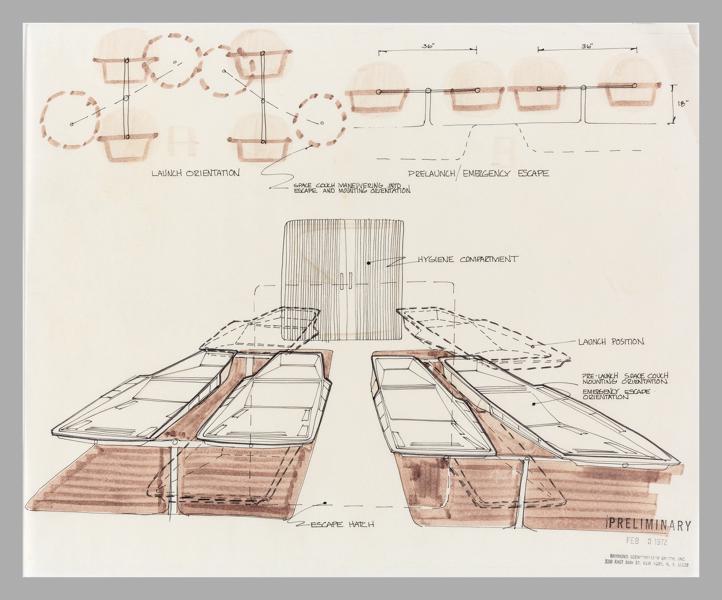 36"
36"
18"
LAUNCH ORIENTATION
SPACE COUCH MANEUVERING INTO
ESCAPE AND MOUNTING ORIENTATION
PRELAUNCH/EMERGENCY ESCAPE
HYGIENE COMPARTMENT
LAUNCH POSITION
PRE-LAUNCH SPACE COUCH
MOUNTING ORIENTATION
EMERGENCY ESCAPE
ORIENTATION
ESCAPE HATCH
PRELIMINARY
FEB 1972
RAYMOND INC.
EAST NEW YORK, N. Y.